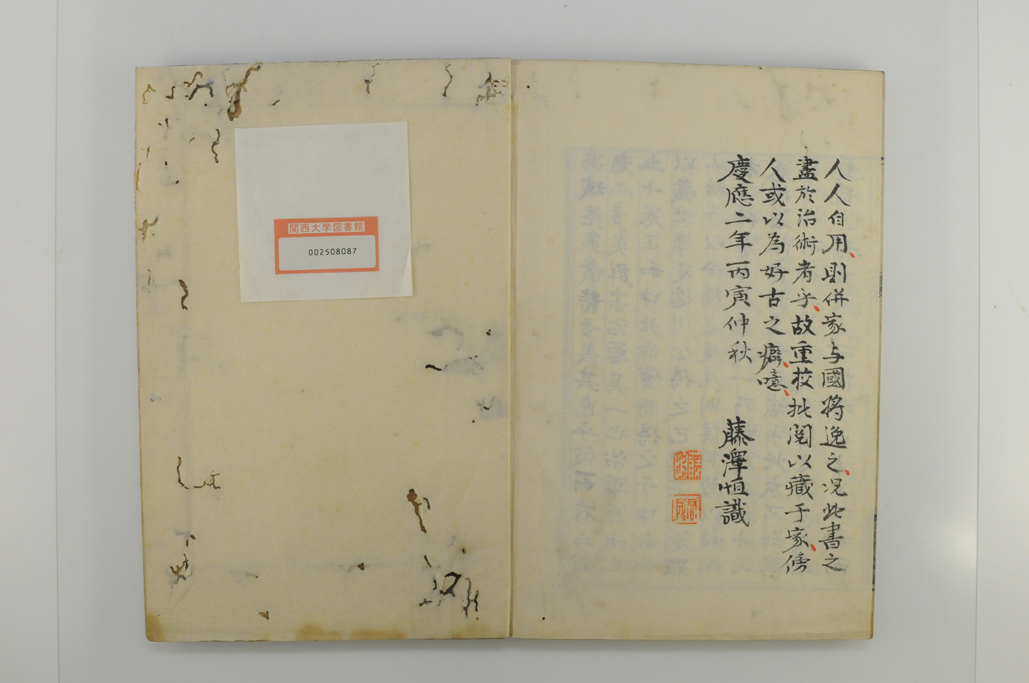 人人自用、則併家与國將逸之、況此書之
盡於治術者乎、故重挍批閲以藏于家、傍
人或以為好古之癖、噫、
慶應二年丙寅仲秋
藤澤恒識
関西大学図書館
002508087